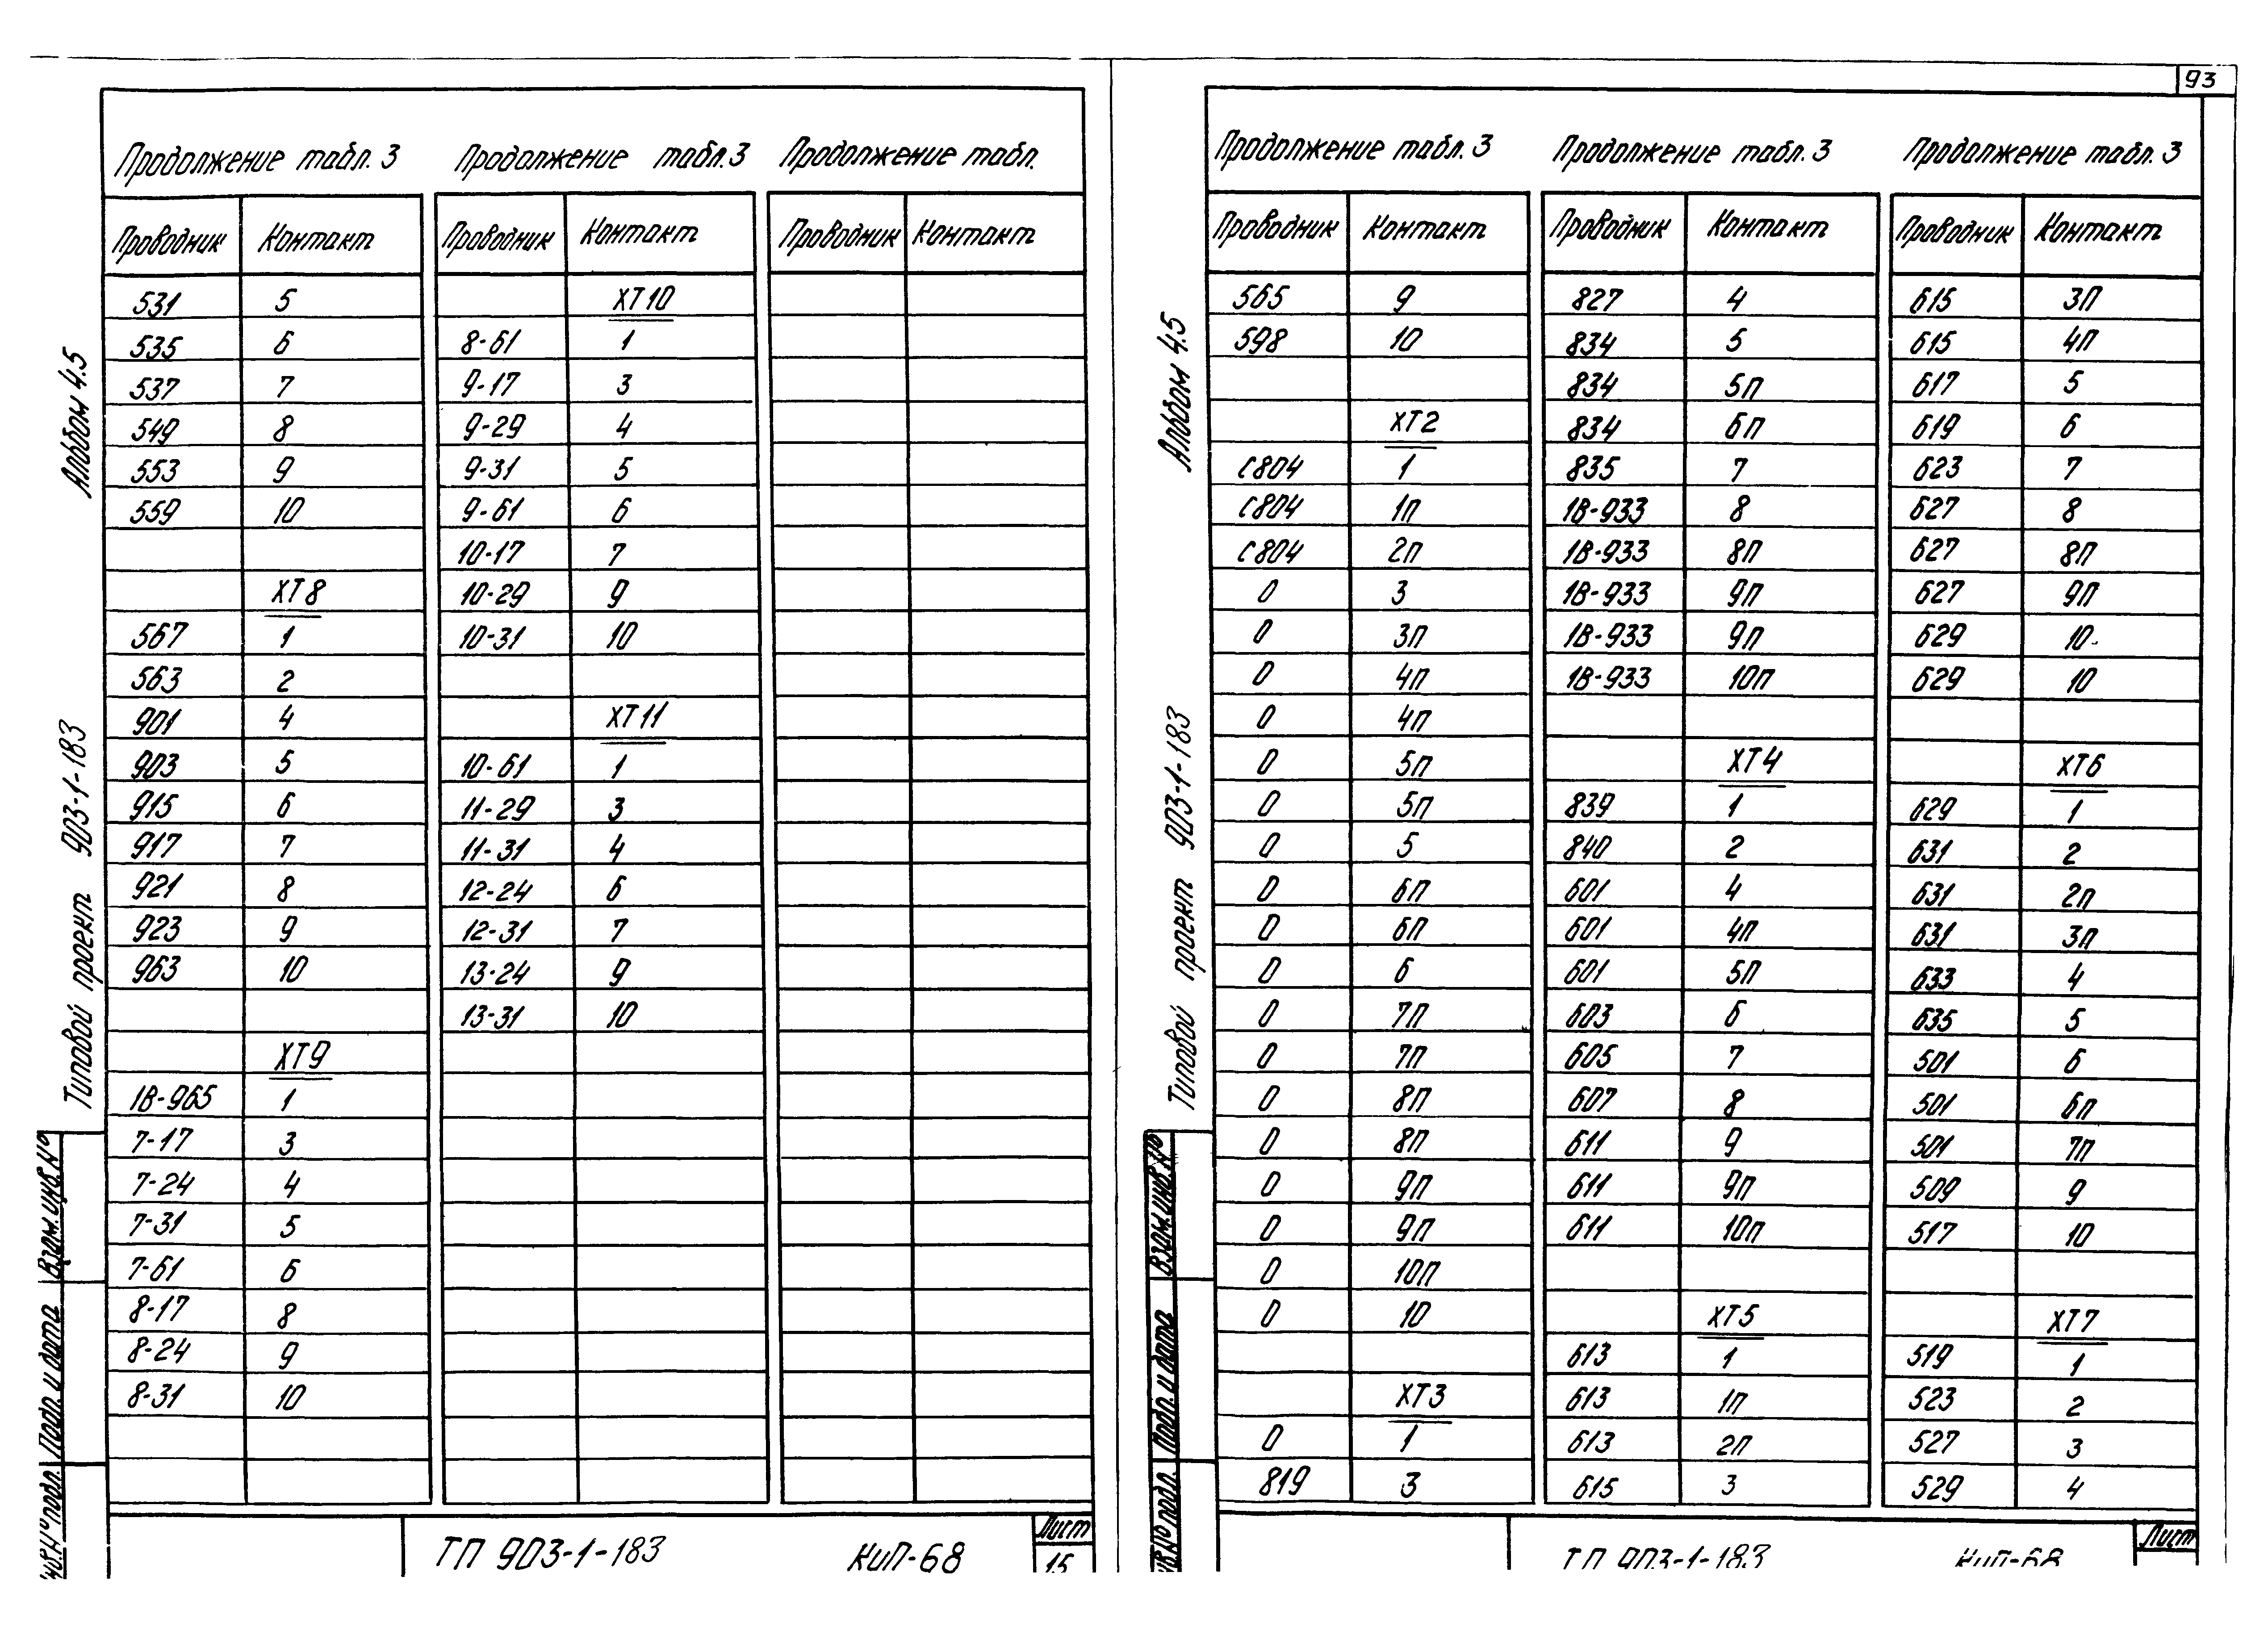 93
Продолжение табл. 3
Проводник Контакт
531 5
535 6
537 7
549 8
553 9
559 10
ХТ8
567 1
563 2
901 4
903 5
915 6
917 7
921 8
923 9
963 10
ХТ9
1В-965 1
7-17 3
7-24 4
7-31 5
7-61 6
8-17 8
8-24 9
8-31 10
Продолжение табл. 3
Проводник Контакт
ХТ10
8-61 1
9-17 3
9-29 4
9-31 5
9-61 6
10-17 7
10-29 9
10-31 10
ХТ11
10-61 1
11-29 3
11-31 4
12-24 6
12-31 7
13-24 9
13-31 10
Продолжение табл.
Проводник Контакт
Альбом 4.5
Типовой проект 903-1-183
Взам. инв. №
Подп. и дата
Инв. № подл.
ТП 903-1-183 КиП-68
Лист
15
Продолжение табл. 3
Проводник Контакт
565 9
598 10
ХТ2
С804 1
С804 1п
С804 2п
0 3
0 3п
0 4п
0 4п
0 5п
0 5п
0 5
0 6п
0 6п
0 6
0 7п
0 7п
0 8п
0 8п
0 9п
0 9п
0 10п
0 10
ХТ3
0 1
819 3
Продолжение табл. 3
Проводник Контакт
827 4
834 5
834 5п
834 6п
835 7
1В-933 8
1В-933 8п
1В-933 9п
1В-933 9п
1В-933 10п
ХТ4
839 1
840 2
601 4
601 4п
601 5п
603 6
605 7
607 8
611 9
611 9п
611 10п
ХТ5
613 1
613 1п
613 2п
615 3
Продолжение табл. 3
Проводник Контакт
615 3П
615 4П
617 5
619 6
623 7
627 8
627 8П
627 9П
629 10
629 10
ХТ6
629 1
631 2
631 2п
631 3п
633 4
635 5
501 6
501 6п
501 7п
509 9
517 10
ХТ7
519 1
523 2
527 3
529 4
Альбом 4.5
Типовой проект 903-1-183
Взам. инв. №
Подп. и дата
Инв. № подл.
ТП 903-1-183 КиП-68
Лист